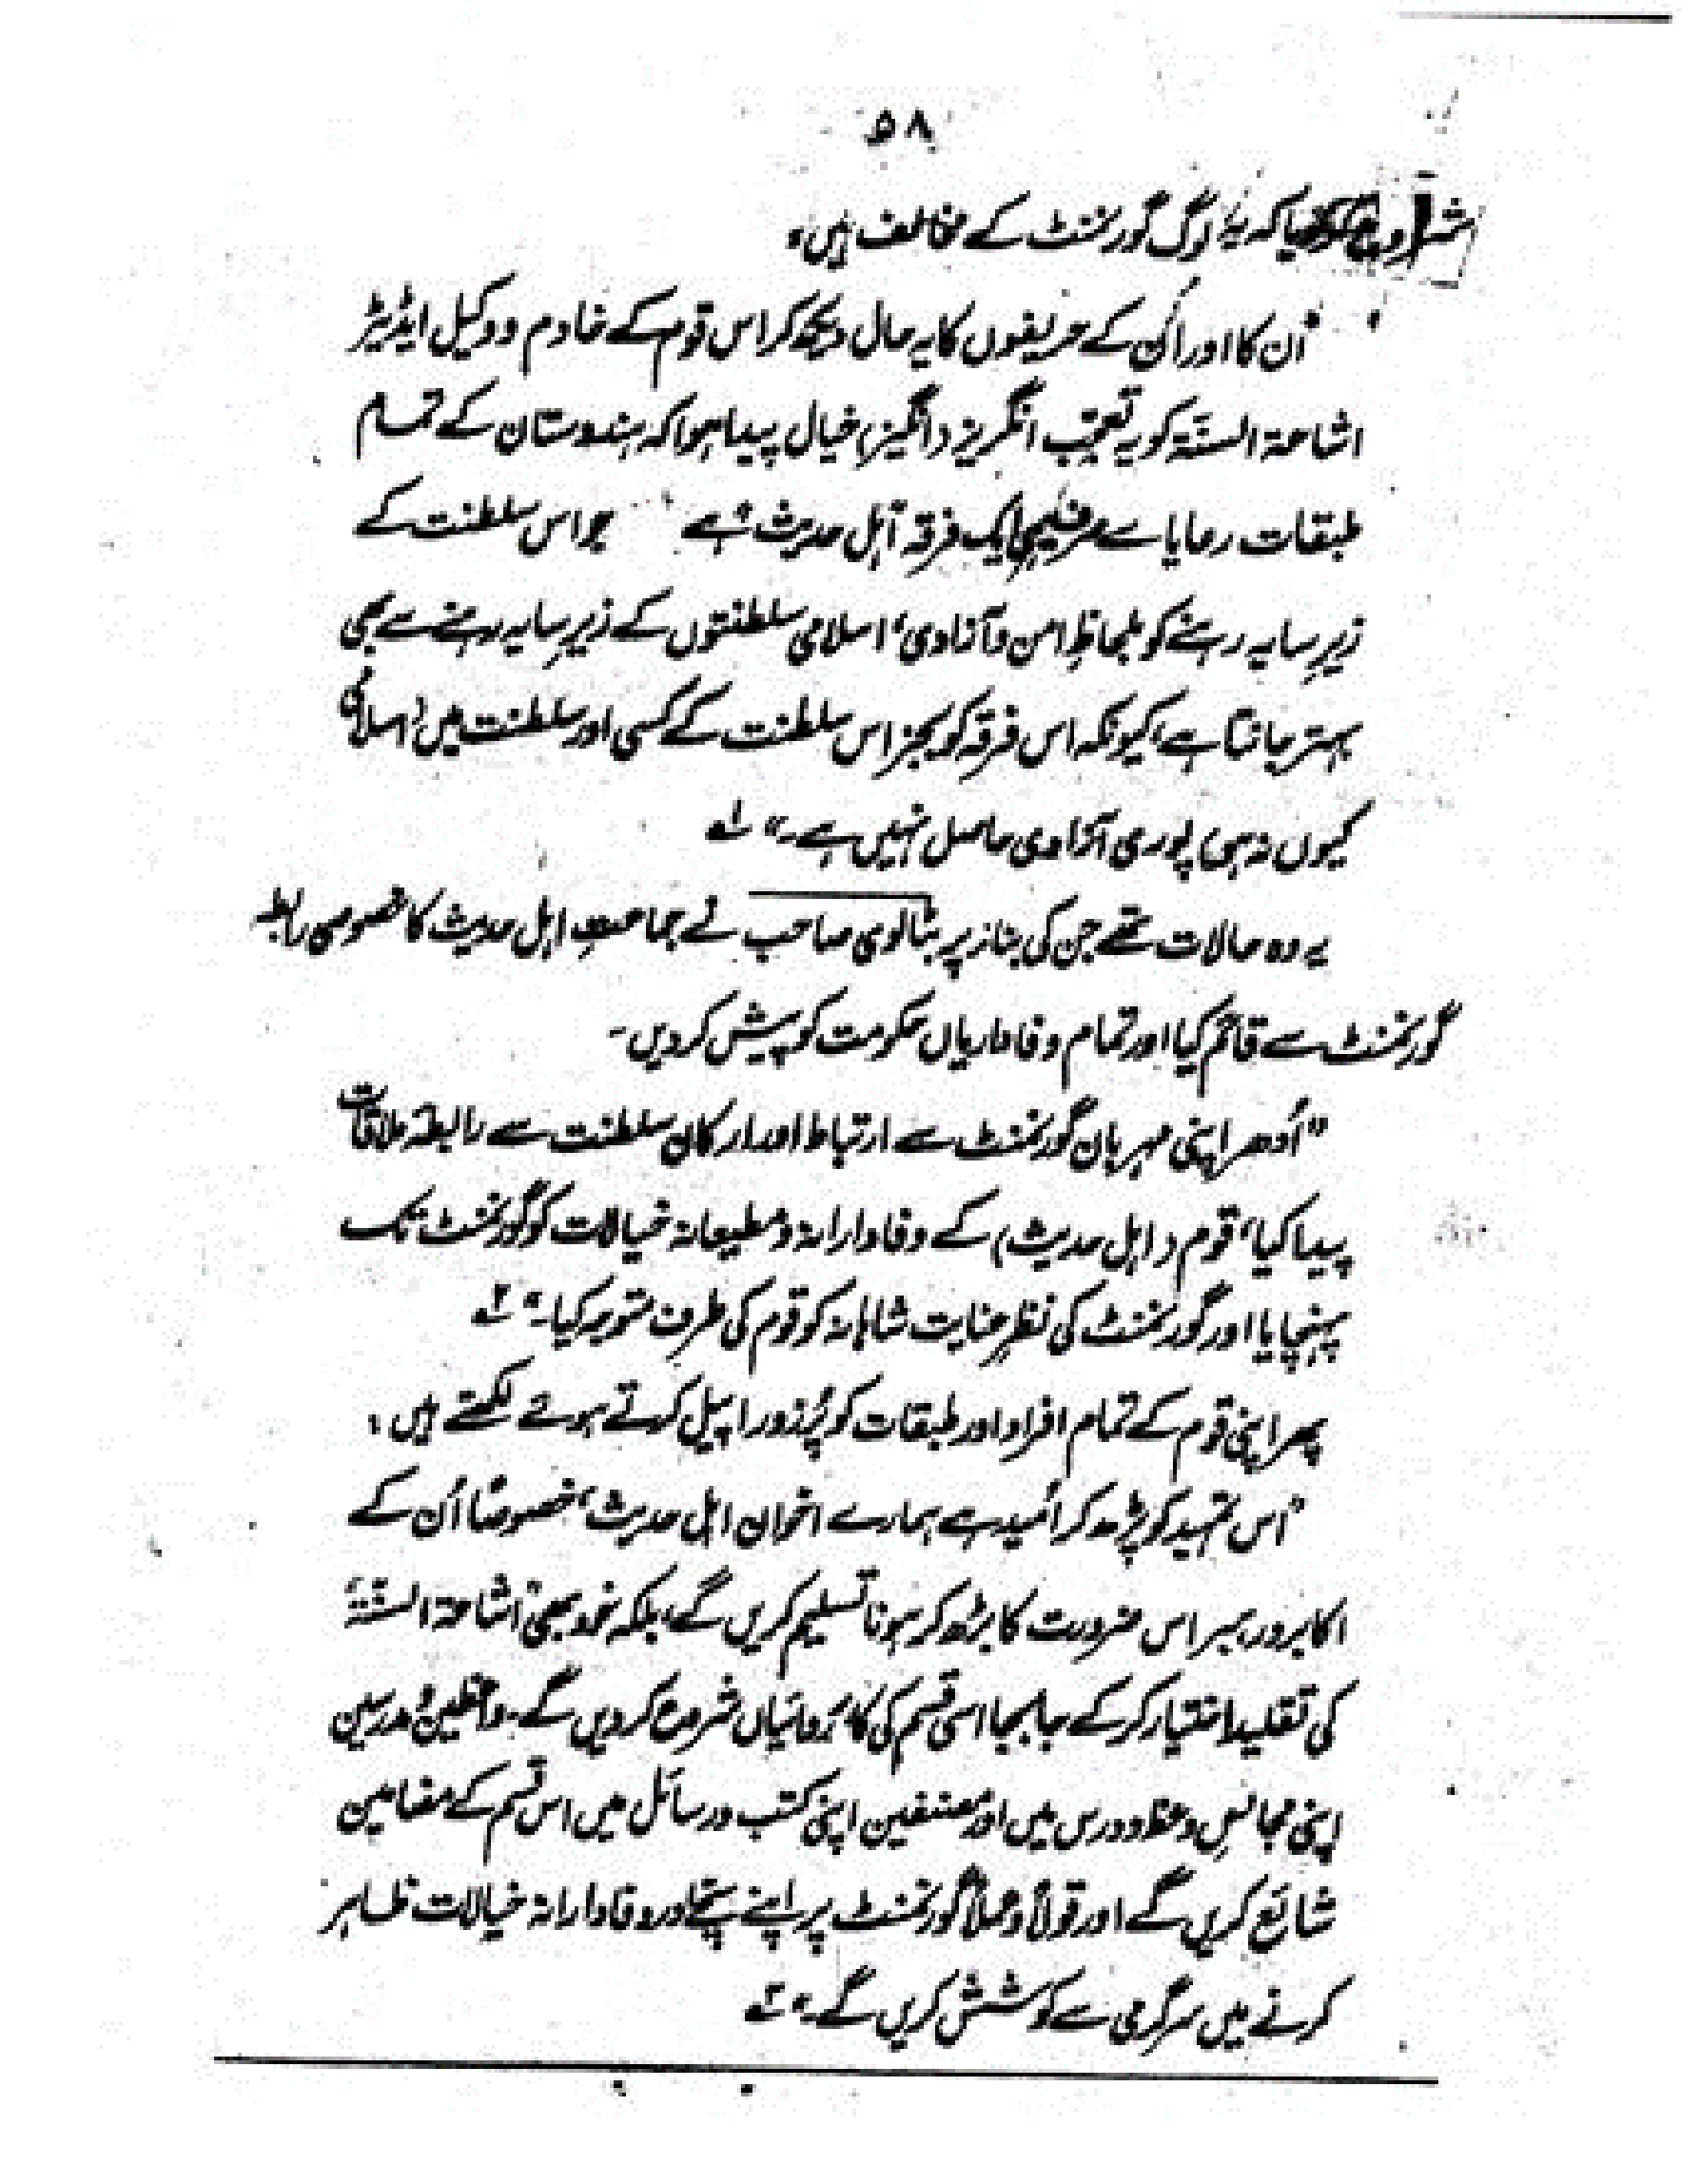 ۵۸
شروع کر دیا کہ یہ لوگ گورنمنٹ کے مخالف ہیں،
"اُن کا اور اُن کے حریفوں کا یہ حال دیکھ کر اس قوم کے خادم و وکیل ایڈیٹر
اشاعۃ السنۃ کو یہ تعجب انگریز (انگیز) خیال پیدا ہوا کہ ہندوستان کے تمام
طبقات رعایا سے صرف یہی ایک فرقہ اہل حدیث ہے جو اس سلطنت کے
زیرِ سایہ رہنے کو بلحاظِ امن و آزادی، اسلامی سلطنتوں کے زیرِ سایہ رہنے سے بھی
بہتر جانتا ہے، کیونکہ اس فرقہ کو بجز اس سلطنت کے کسی اور سلطنت میں (اسلامی
کیوں نہ ہو) پوری آزادی حاصل نہیں ہے۔" ۱؎
یہ وہ حالات تھے جن کی بناء پر بٹالوی صاحب نے جماعتِ اہل حدیث کا خصوصی رابطہ
گورنمنٹ سے قائم کیا اور تمام وفاداریاں حکومت کو پیش کر دیں۔
"اُدھر اپنی مہربان گورنمنٹ سے ارتباط اور ارکان سلطنت سے رابطۂ ملاقات
پیدا کیا، قوم (اہل حدیث) کے وفادارانہ و مطیعانہ خیالات کو گورنمنٹ تک
پہنچایا اور گورنمنٹ کی نظرِ عنایت شاہانہ کو قوم کی طرف متوجہ کیا۔" ۲؎
پھر اپنی قوم کے تمام افراد اور طبقات کو پُرزور اپیل کرتے ہوئے لکھتے ہیں:
"اس تمہید کو پڑھ کر اُمید ہے ہمارے اخوان اہل حدیث، خصوصاً اُن کے
اکابر و رہبر اس ضرورت کا بڑھ کر ہونا تسلیم کریں گے، بلکہ خود بھی "اشاعۃ السنۃ"
کی تقلید اختیار کر کے جا بجا اسی قسم کی کارروائیاں شروع کر دیں گے۔ واعظین و مدرسین
اپنی مجالسِ وعظ و درس میں اور مصنفین اپنی کتب و رسائل میں اس قسم کے مضامین
شائع کریں گے اور قولاً و عملاً گورنمنٹ پر اپنے سچے اور وفادارانہ خیالات ظاہر
کرنے میں سرگرمی سے کوشش کریں گے۔" ۳؎